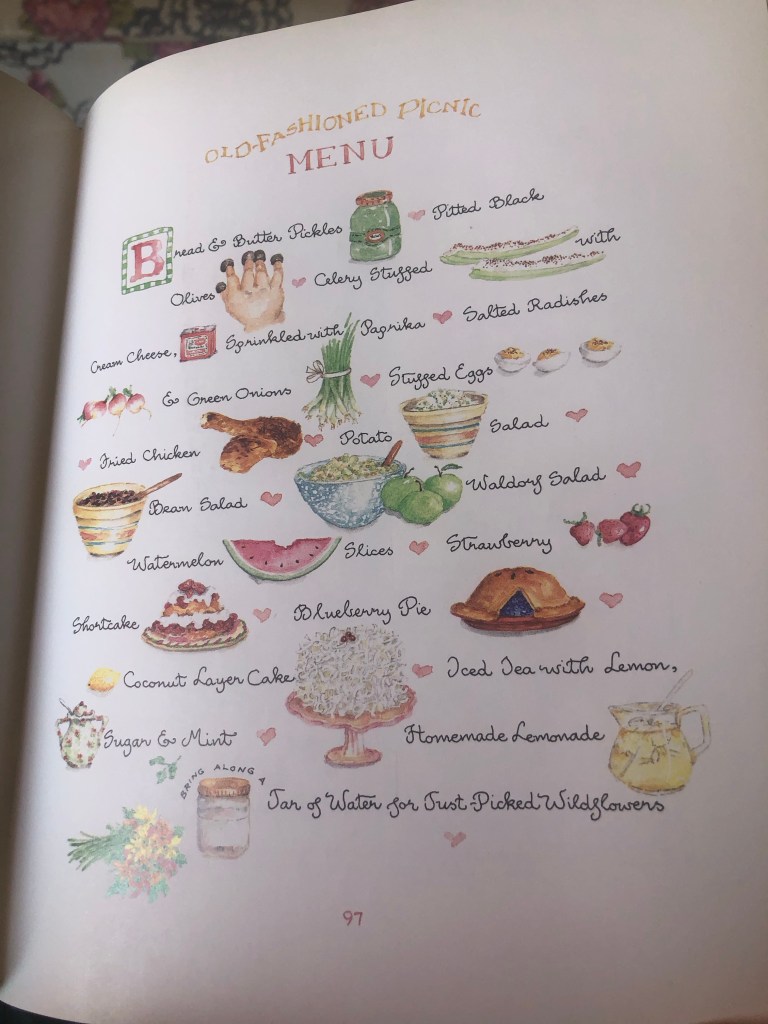 OLD-FASHIONED PICNIC
MENU
Bread & Butter Pickles ♥ Pitted Black
Olives ♥ Celery Stuffed with
Cream Cheese, Sprinkled with Paprika ♥ Salted Radishes
& Green Onions ♥ Stuffed Eggs
♥ Fried Chicken ♥ Potato Salad ♥
Bean Salad ♥ Waldorf Salad ♥
Watermelon Slices ♥ Strawberry
Shortcake ♥ Blueberry Pie ♥
Coconut Layer Cake ♥ Iced Tea with Lemon,
Sugar & Mint ♥ Homemade Lemonade
BRING ALONG A
Jar of Water for Just-Picked Wildflowers
♥
97